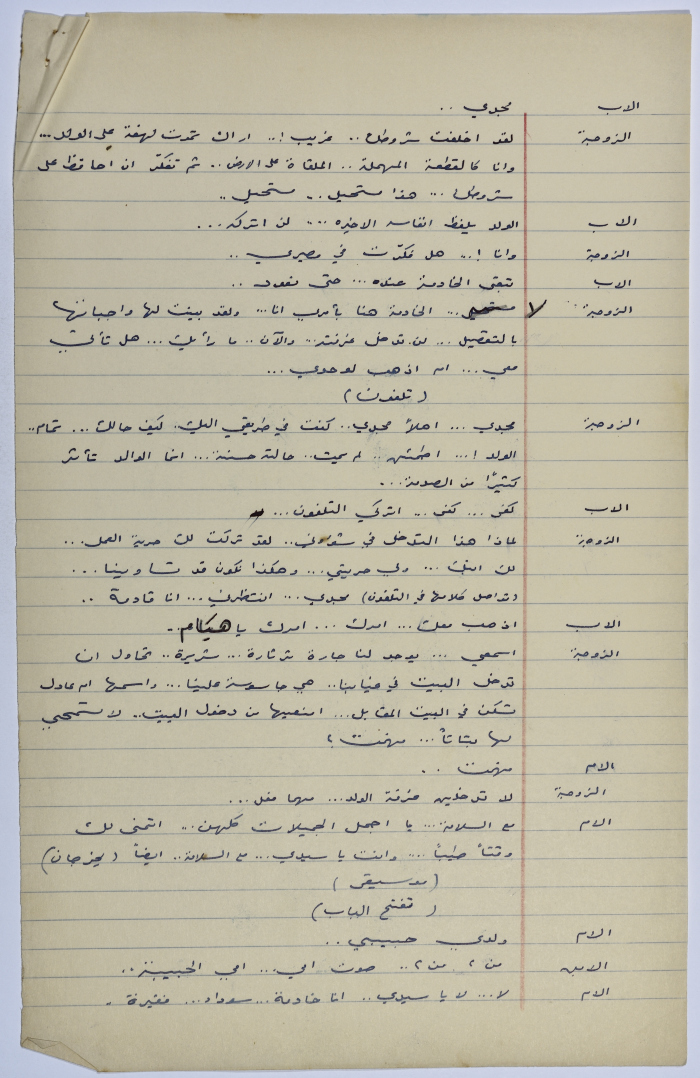 الاب مجدي ..
الزوجة لقد اخلفت شروطك .. غريب !.. اراك تموت لهفة على الولد ...
وانا كالقطعة المهملة .. الملقاة على الارض .. ثم تفكر ان احافظ على
شروطك ... هذا مستحيل .. مستحيل ..
الاب الولد يلفظ انفاسه الاخيره .... لن اتركه ...
الزوجة وانا !.. هل فكّرت في مصيري ..
الاب تبقى الخادمة عنده ... حتى نعود ..
الزوجة لا ... الخادمة هنا بأمري انا ... ولقد بينت لها واجباتها
بالتفصيل ... لن تدخل غرفته ... والآن .. ما رأيك ... هل تأتي
معي ... ام اذهب لوحدي ...
(تلفون)
الزوجة مجدي ... اهلاً مجدي .. كنت في طريقي اليك .. كيف حالك ... تمام ..
الولد !... اطمئن .. لم يمت .. حالته حسنة ... انما الوالد تأثر
كثيرًا من الصدمة ...
الاب كفى ... كفى ... اتركي التلفون ...
الزوجة لماذا هذا التدخل في شؤوني .. لقد تركت لك حرية العمل ...
لك ابنك ... ولي حريتي ... وهكذا نكون قد تساوينا ...
(تواصل كلامها في التلفون) مجدي ... انتظرني ... انا قادمة ..
الاب اذهب معك ... امرك ... امرك يا هيام ..
الزوجة اسمعي ... يوجد لنا جارة ثرثارة ... شريرة .. تحاول ان
تدخل البيت في غيابنا .. هي جاسوسة علينا ... واسمها ام عادل
تسكن في البيت المقابل ... امنعيها من دخول البيت .. لا تسمحي
لها بتاتاً ... فهمت ؟
الام فهمت ..
الزوجة لا تدخلين غرفة الولد ... مهما فعل ...
الام مع السلامة ... يا اجمل الجميلات كلهن ... اتمنى لك
وقتاً طيباً .... وانت يا سيدي ... مع السلامة .. ايضاً (يخرجان)
(موسيقى)
(تفتح الباب)
الام ولدي حبيبي ..
الابن من ؟ من ؟ .. صوت امي ... امي الحبيبة ..
الام لا ... لا يا سيدي .. انا خادمة ... سوداء ... فقيرة .